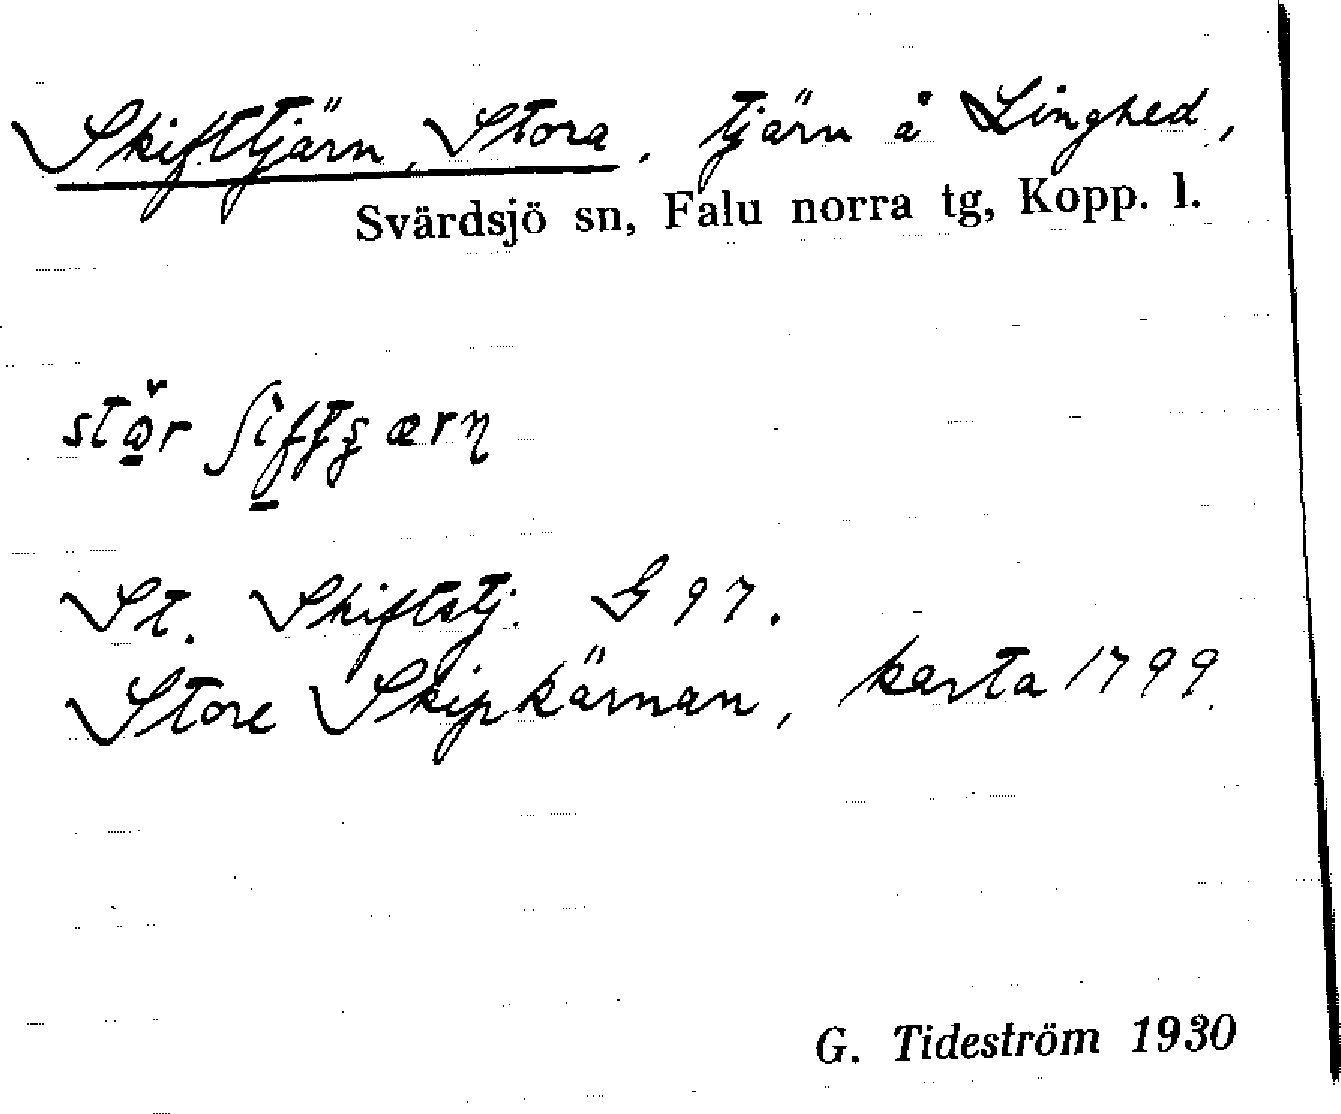 Skifttjärn, Stora, tjärn å Linghed,
Svärdsjö sn, Falu norra tg, Kopp. l.
St. Skiftstj. G 97.
Store Skipkärnan, karta 1799.
G. Tideström 1930